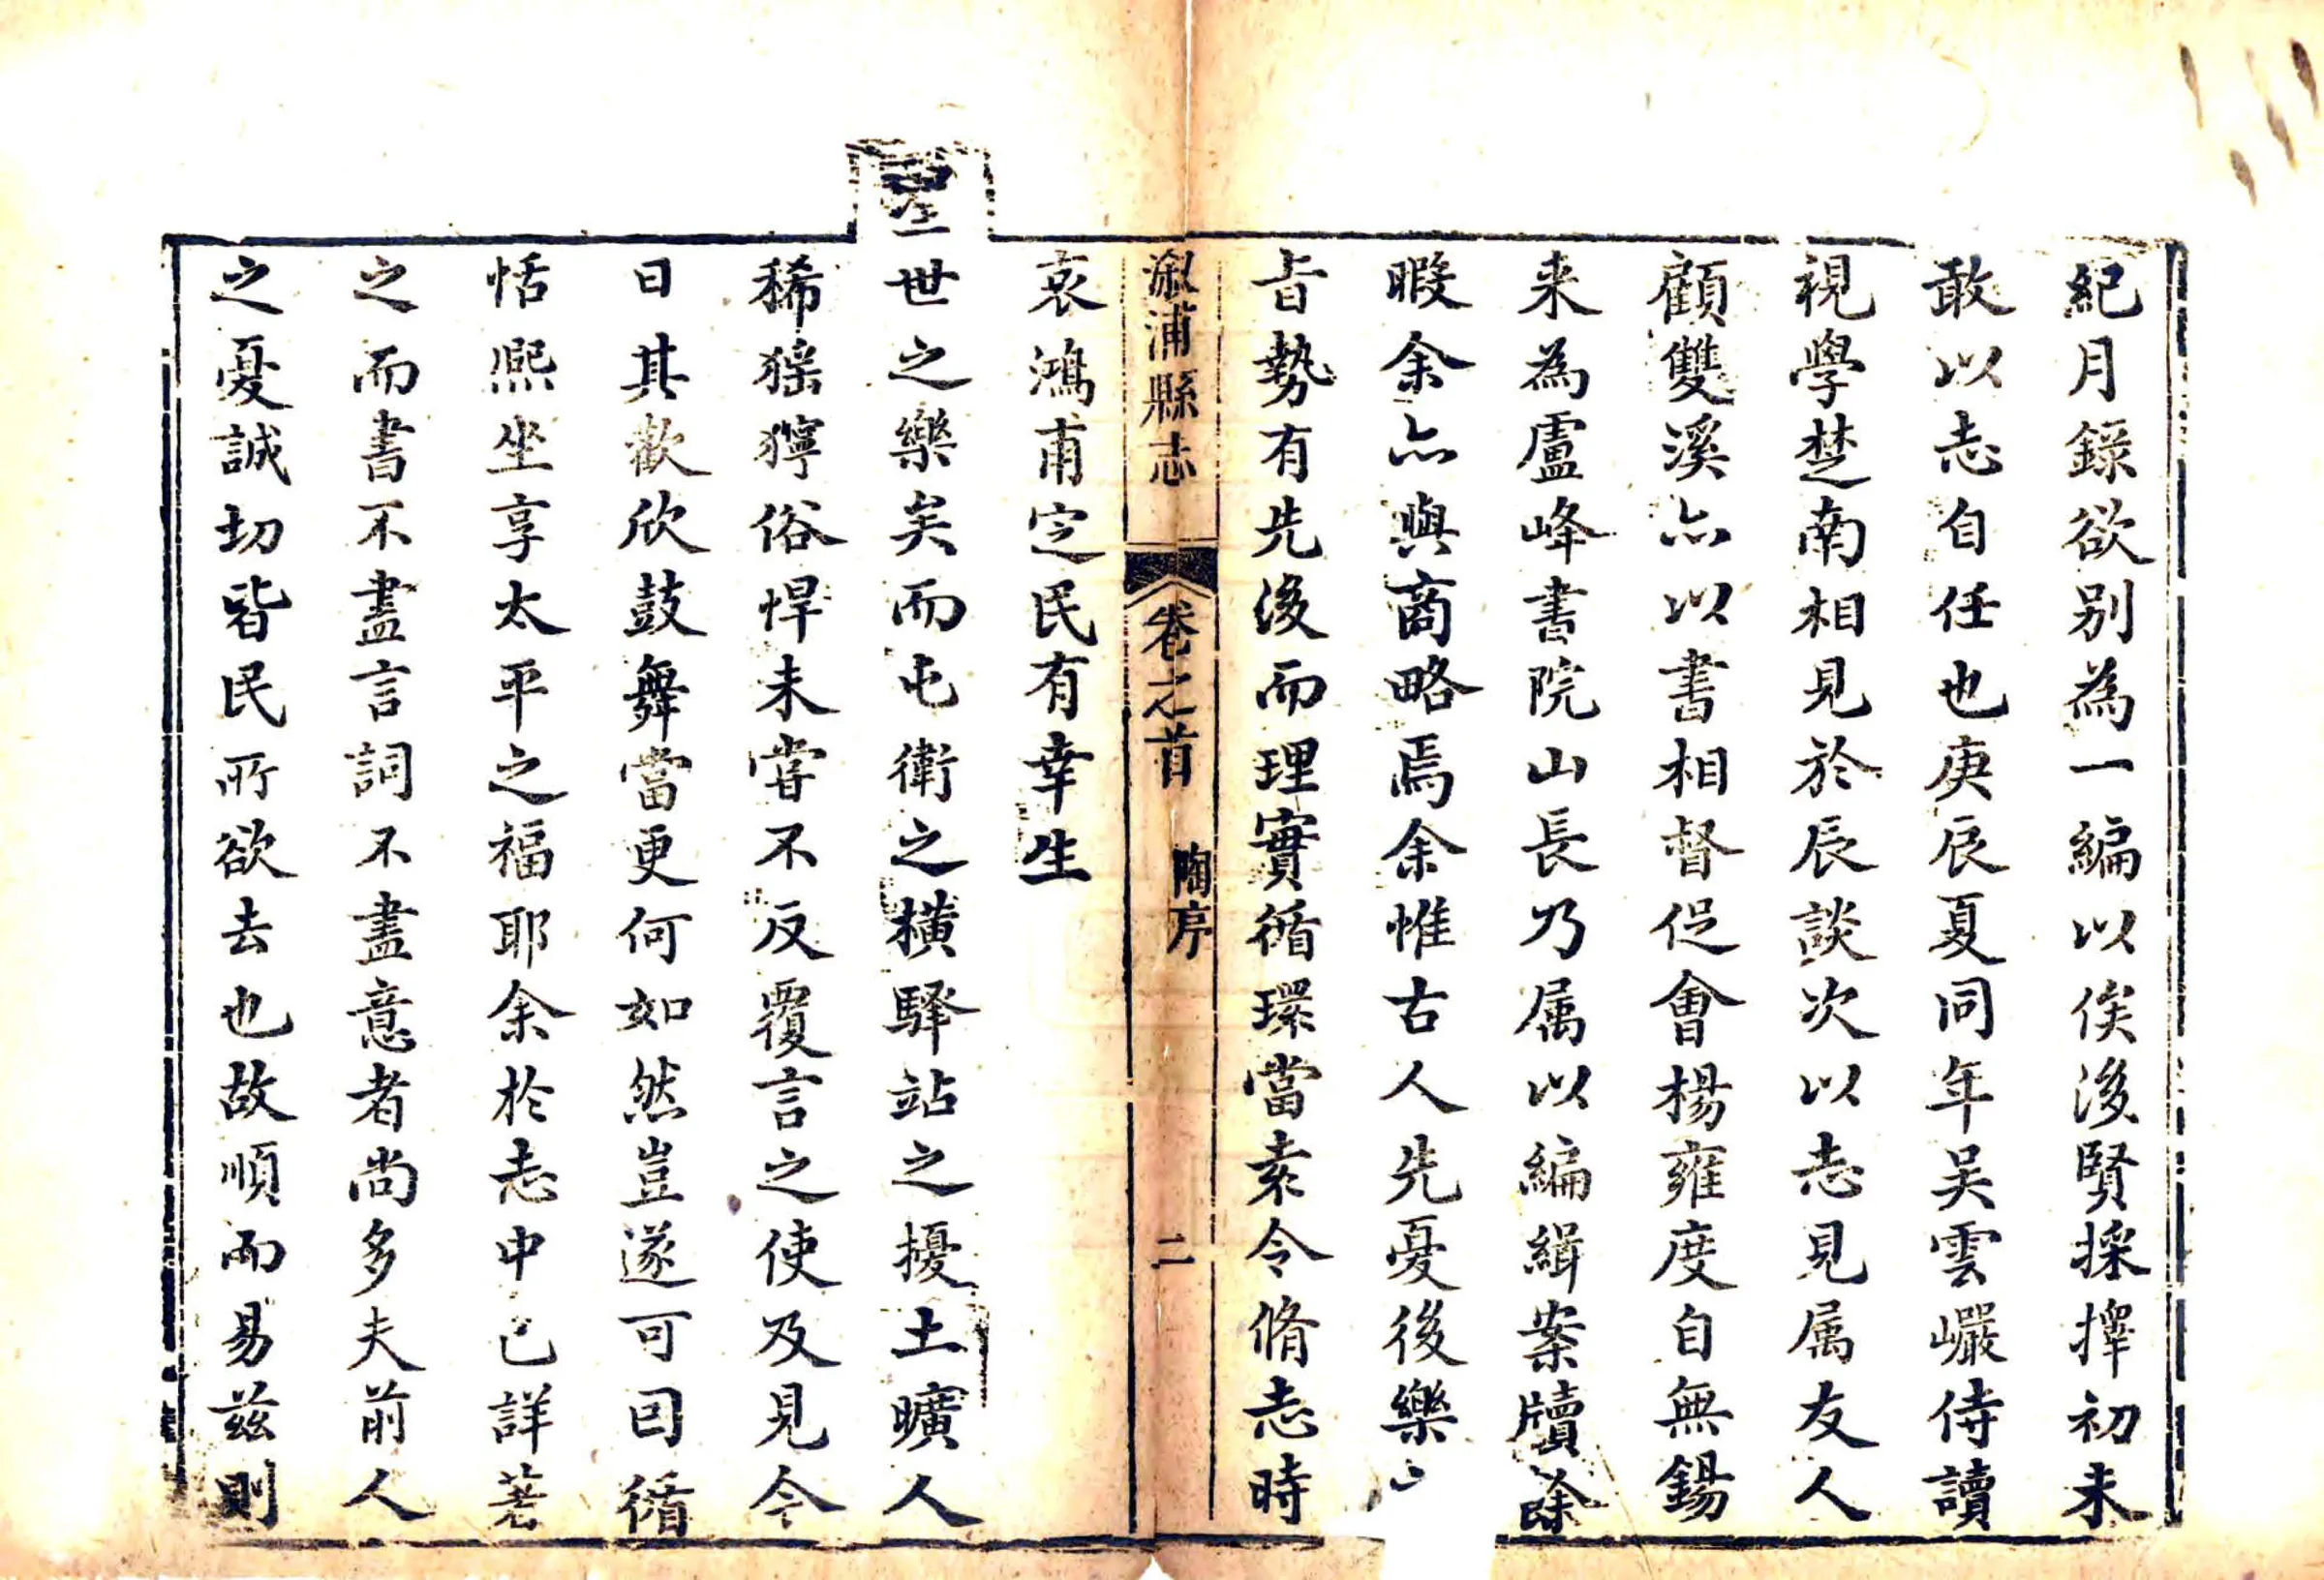 紀月錄欲别為一編以俟後賢採擇初未
敢以志自任也庚辰夏同年吴雲巖侍讀
視學楚南相見於辰談次以志見属友人
顧雙溪亦以書相督促會楊雍度自無錫
来為盧峰書院山長乃属以編緝案牘除
暇余亦與商略焉余惟古人先憂後樂
旹勢有先後而理實循環當袁令脩志時
溆浦縣志 卷之首 陶序 二
哀鴻甫定民有幸生
聖世之樂矣而屯衛之横驛站之擾土曠人
稀猺獰俗悍未甞不反覆言之使及見今
日其歡欣鼓舞當更何如然豈遂可囙循
恬熙坐享太平之福耶余於志中已詳著
之而書不盡言詞不盡意者尚多夫前人
之憂誠切皆民所欲去也故順而易兹則